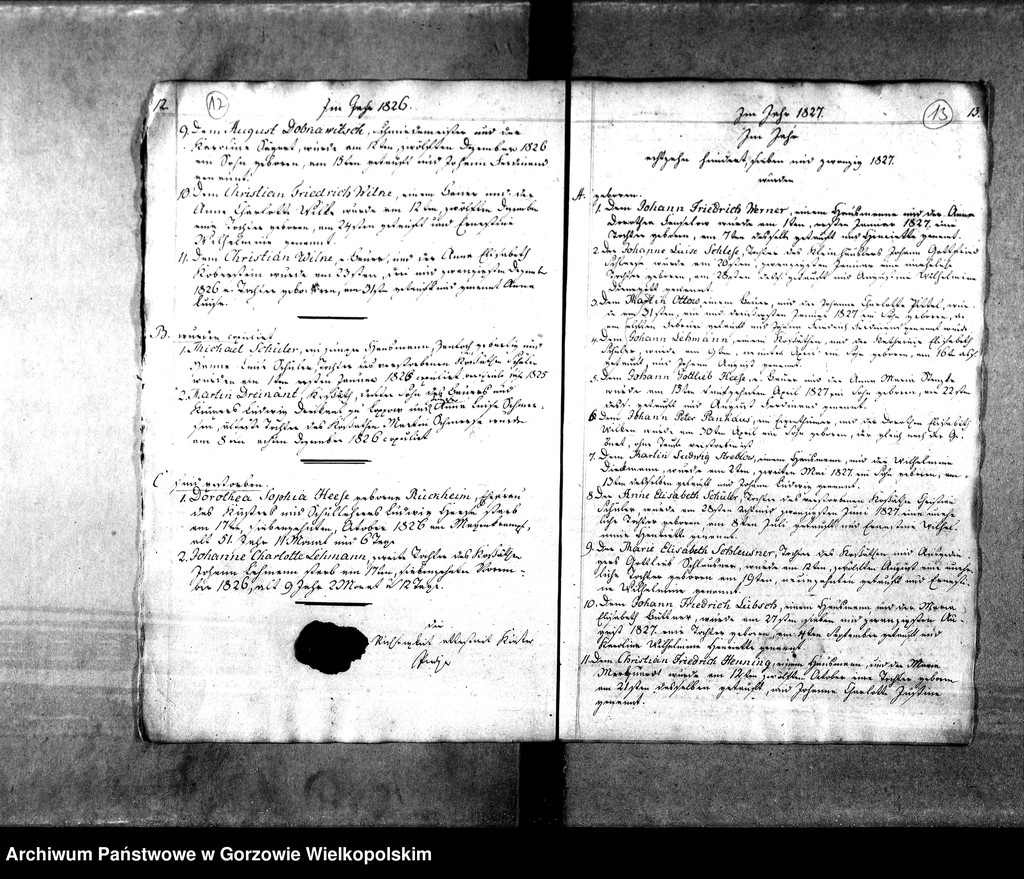 12. 12 Im Jahr 1826.
9. Dem August Dobrawitsch, Schmiedemeister und der
Karoline Seyert, wurde am 12ten, zwölften Dezember 1826
ein Sohn geboren, am 13ten getauft und Johann Ferdinand
genannt.
10. Dem Christian Friedrich Wilne, einem Bauer und der
Anne Charlotte Wilke wurde am 12ten zwölften Dezember
eine Tochter geboren, am 24sten getauft und Ernestine
Wilhelmine genannt.
11. Dem Christian Wilne, e. Bauer, und der Anne Elisabeth
Koberstein wurde am 23sten, drei und zwanzigsten Dezembr
1826 e. Tochter geboren, am 31sten getauft und genannt Anne
Luise.
B. wurden copulirt
1. Michael Schüler, ein junger Hausmann,
Hanne Luise Schüler, Tochter des verstorbenen Kossäthen
wurden am 1ten ersten Januar 1826 copulirt 1825
2. Martin Dreinant, Kossäth, Sohn des Bauers und
Ludwig zu und Anne Luise
Tochter des Kossäthen Martin wurden
am 8ten achten Dezember 1826 copulirt
C. sind verstorben.
1. Dorothea Sophia Heese geborne Rückheim, Ehefrau
des Küsters und Schullehrers Ludwig Heese starb
am 17ten, siebenzehnten, October 1826 an Magenkrampf,
alt 51 Jahr 11 Monat und 6 Tage.
2. Johanne Charlotte Lehmann, zweite Tochter des Kossäthen
Johann Lehmann starb am 17ten, siebenzehnten Novem-
ber 1826, alt 9 Jahr 2 Monat u 12 Tage.
die
Richtigkeit attestirt Küster
Im Jahr 1827. 13 13.
Im Jahr
achtzehn hundert, sieben und zwanzig 1827.
wurden
A. geboren.
1. Dem Johann Friedrich Werner, einem Hausmanne und der Anne
Dorothee wurde am 1sten, ersten Januar 1827, eine
Tochter geboren, am 7ten desselben getauft und Henriette genannt.
2. Der Johanne Luise Schlese, Tochter des Johann Gottfried
Schlese wurde am 20sten, zwanzigsten Januar eine uneheliche
Tochter geboren, am 28sten getauft und Wilhelmine
genannt.
3. Dem Martin Ottow, einem Bauer, und der Johanne Charlotte wur-
de am 31sten, ein und dreißigsten Januar 1827 ein Sohn geboren, am
Februar getauft und Johann Friedrich Ferdinand genannt
4. Dem Johann Lehmann, einem Kossäthen, und der Katharine Elisabeth
Schüler, wurde am 9ten, neunten April ein Sohn geboren, am 16ten
getauft und Johann August genannt.
5. Dem Johann Gottlieb Heese, e. Bauer und der Anne Maria
wurde am 15ten funfzehnten April 1827 ein Sohn geboren, am 22sten
getauft und August Ferdinand genannt.
6. Dem Johann Peter Pankaus, ein Eigenthümer, und der Dorothee Elisabeth
Wilken wurde am 30ten April ein Sohn geboren, der gleich nach der Ge-
burt, ohne Taufe verstorben ist
7. Dem Martin Ludwig Streblow, einem Hausmann, und der Wilhelmine
Dieckmann, wurde am 2ten, zweiten Mai 1827 ein Sohn geboren, am
13ten desselben getauft und Johann Ludwig genannt.
8. Der Anne Elisabeth Schüler, Tochter des verstorbenen Kossäthen Christian
Schüler wurde am 28sten acht und zwanzigsten Juni 1827 eine unehe-
liche Tochter geboren, am 8ten Juli getauft und Ernestine Wilhel-
mine Henriette genannt.
9. Der Marie Elisabeth Schleusner, Tochter des Kossäthen
Gottlieb Schleusner, wurde am 12ten, zwölften August eine unehe-
liche Tochter geboren am 19ten, neunzehnten getauft und Ernesti-
ne Wilhelmine genannt.
10. Dem Johann Friedrich Lübsch, einem Hausmann und der Maria
Elisabeth Büttner, wurde am 27sten, sieben und zwanzigsten Au-
gust 1827 eine Tochter geboren, am 4ten September getauft und
Karoline Wilhelmine Henriette genannt
11. Dem Christian Friedrich Henning, einem Hausmann, und der Marie
Marquardt wurde am 12ten zwölften October eine Tochter geboren
am 21sten desselben getauft, und Johanne Charlotte Justine
genannt.
Archiwum Państwowe w Gorzowie Wielkopolskim